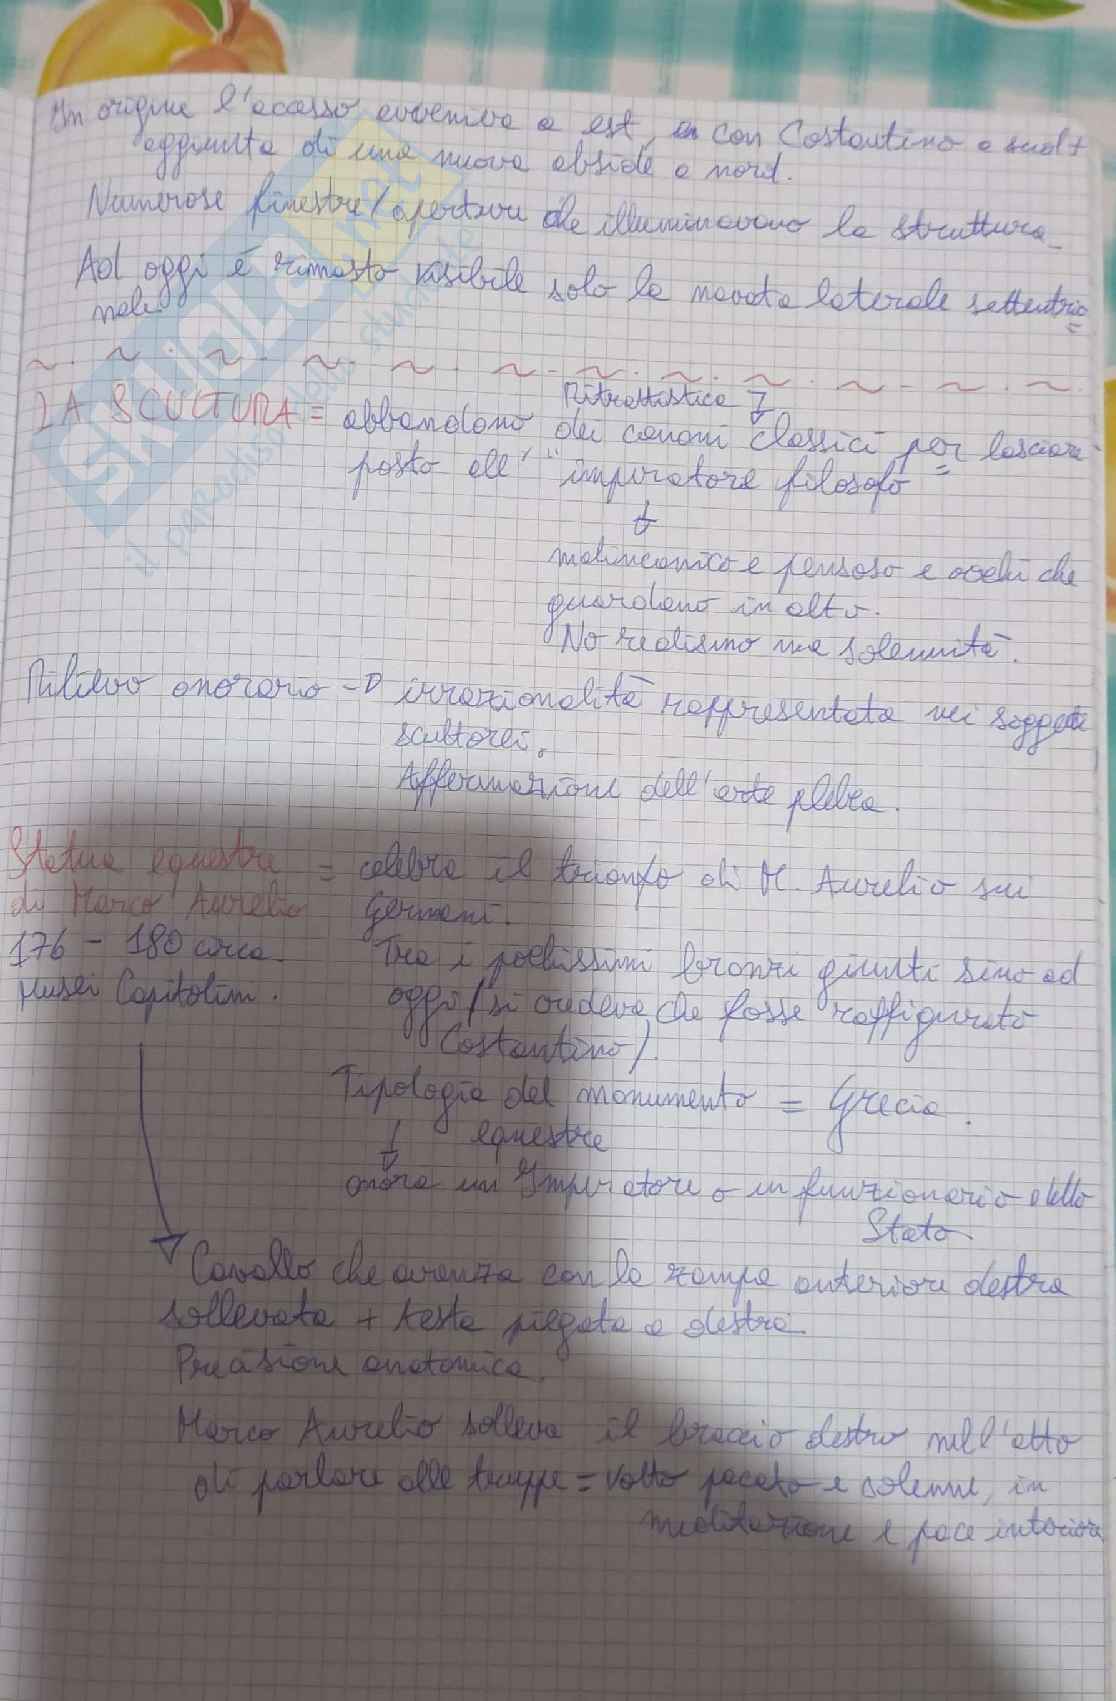 In origine l'accesso avveniva a est, con Costantino a sud +
aggiunta di una nuova abside a nord.
Numerose finestre/aperture che illuminavano la struttura.
Ad oggi è rimasto visibile solo la navata laterale settentrio=
nale.
LA SCULTURA = Ritrattistica
abbandono dei canoni classici per lasciare
posto all' "imperatore filosofo
malinconico e pensoso e occhi che
guardano in alto.
No realismo ma solennità.
Rilievo onorario -> irrazionalità rappresentata nei soggetti
scultorei.
Affermazione dell'arte plebea.
Statua equestre = celebra il trionfo di M. Aurelio sui
di Marco Aurelio Germani.
176 - 180 circa. Tra i pochissimi bronzi giunti sino ad
Musei Capitolini. oggi (si credeva che fosse raffigurato
Costantino).
Tipologia del monumento = Grecia.
equestre
onora un Imperatore o un funzionario dello
Stato
Cavallo che avanza con la zampa anteriore destra
sollevata + testa piegata a destra.
Precisione anatomica.
Marco Aurelio solleva il braccio destro nell'atto
di parlare alle truppe = volto pacato e solenne, in
meditazione e pace interiore
SKUOLA.net
il paradiso dello studente